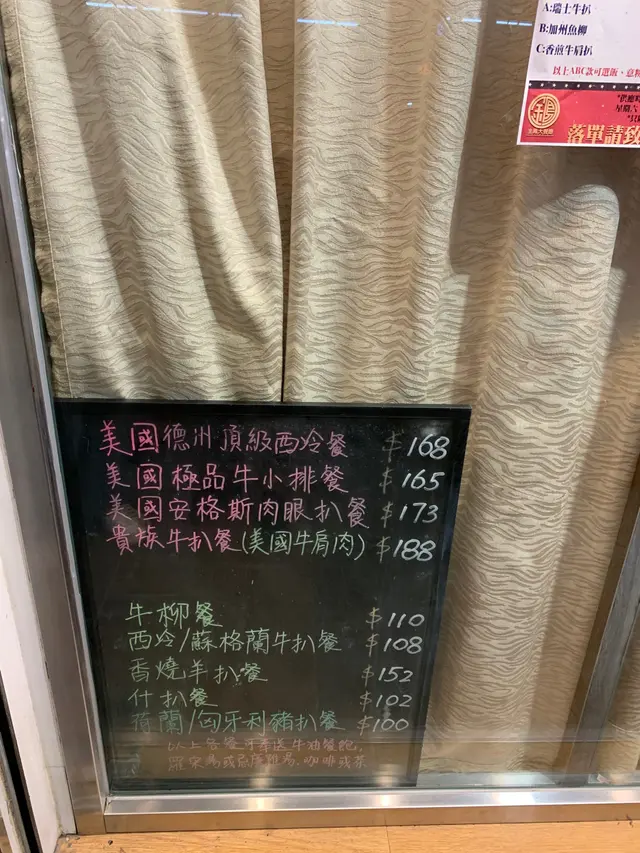 A:瑞士牛扒
B:加州魚柳
C:香煎牛肩扒
以上ABC款可選飯、意粉
星期六
落單請致
美國德州頂級西冷餐 $168
美國極品牛小排餐 $165
美國安格斯肉眼扒餐 $173
貴族牛扒餐(美國牛肩肉) $188
牛柳餐 $110
西冷/蘇格蘭牛扒餐 $108
香燒羊扒餐 $152
什扒餐 $102
荷蘭/匈牙利豬扒餐 $100
以上各餐可奉送牛油餐飽,
羅宋湯或忌廉雞湯,咖啡或茶